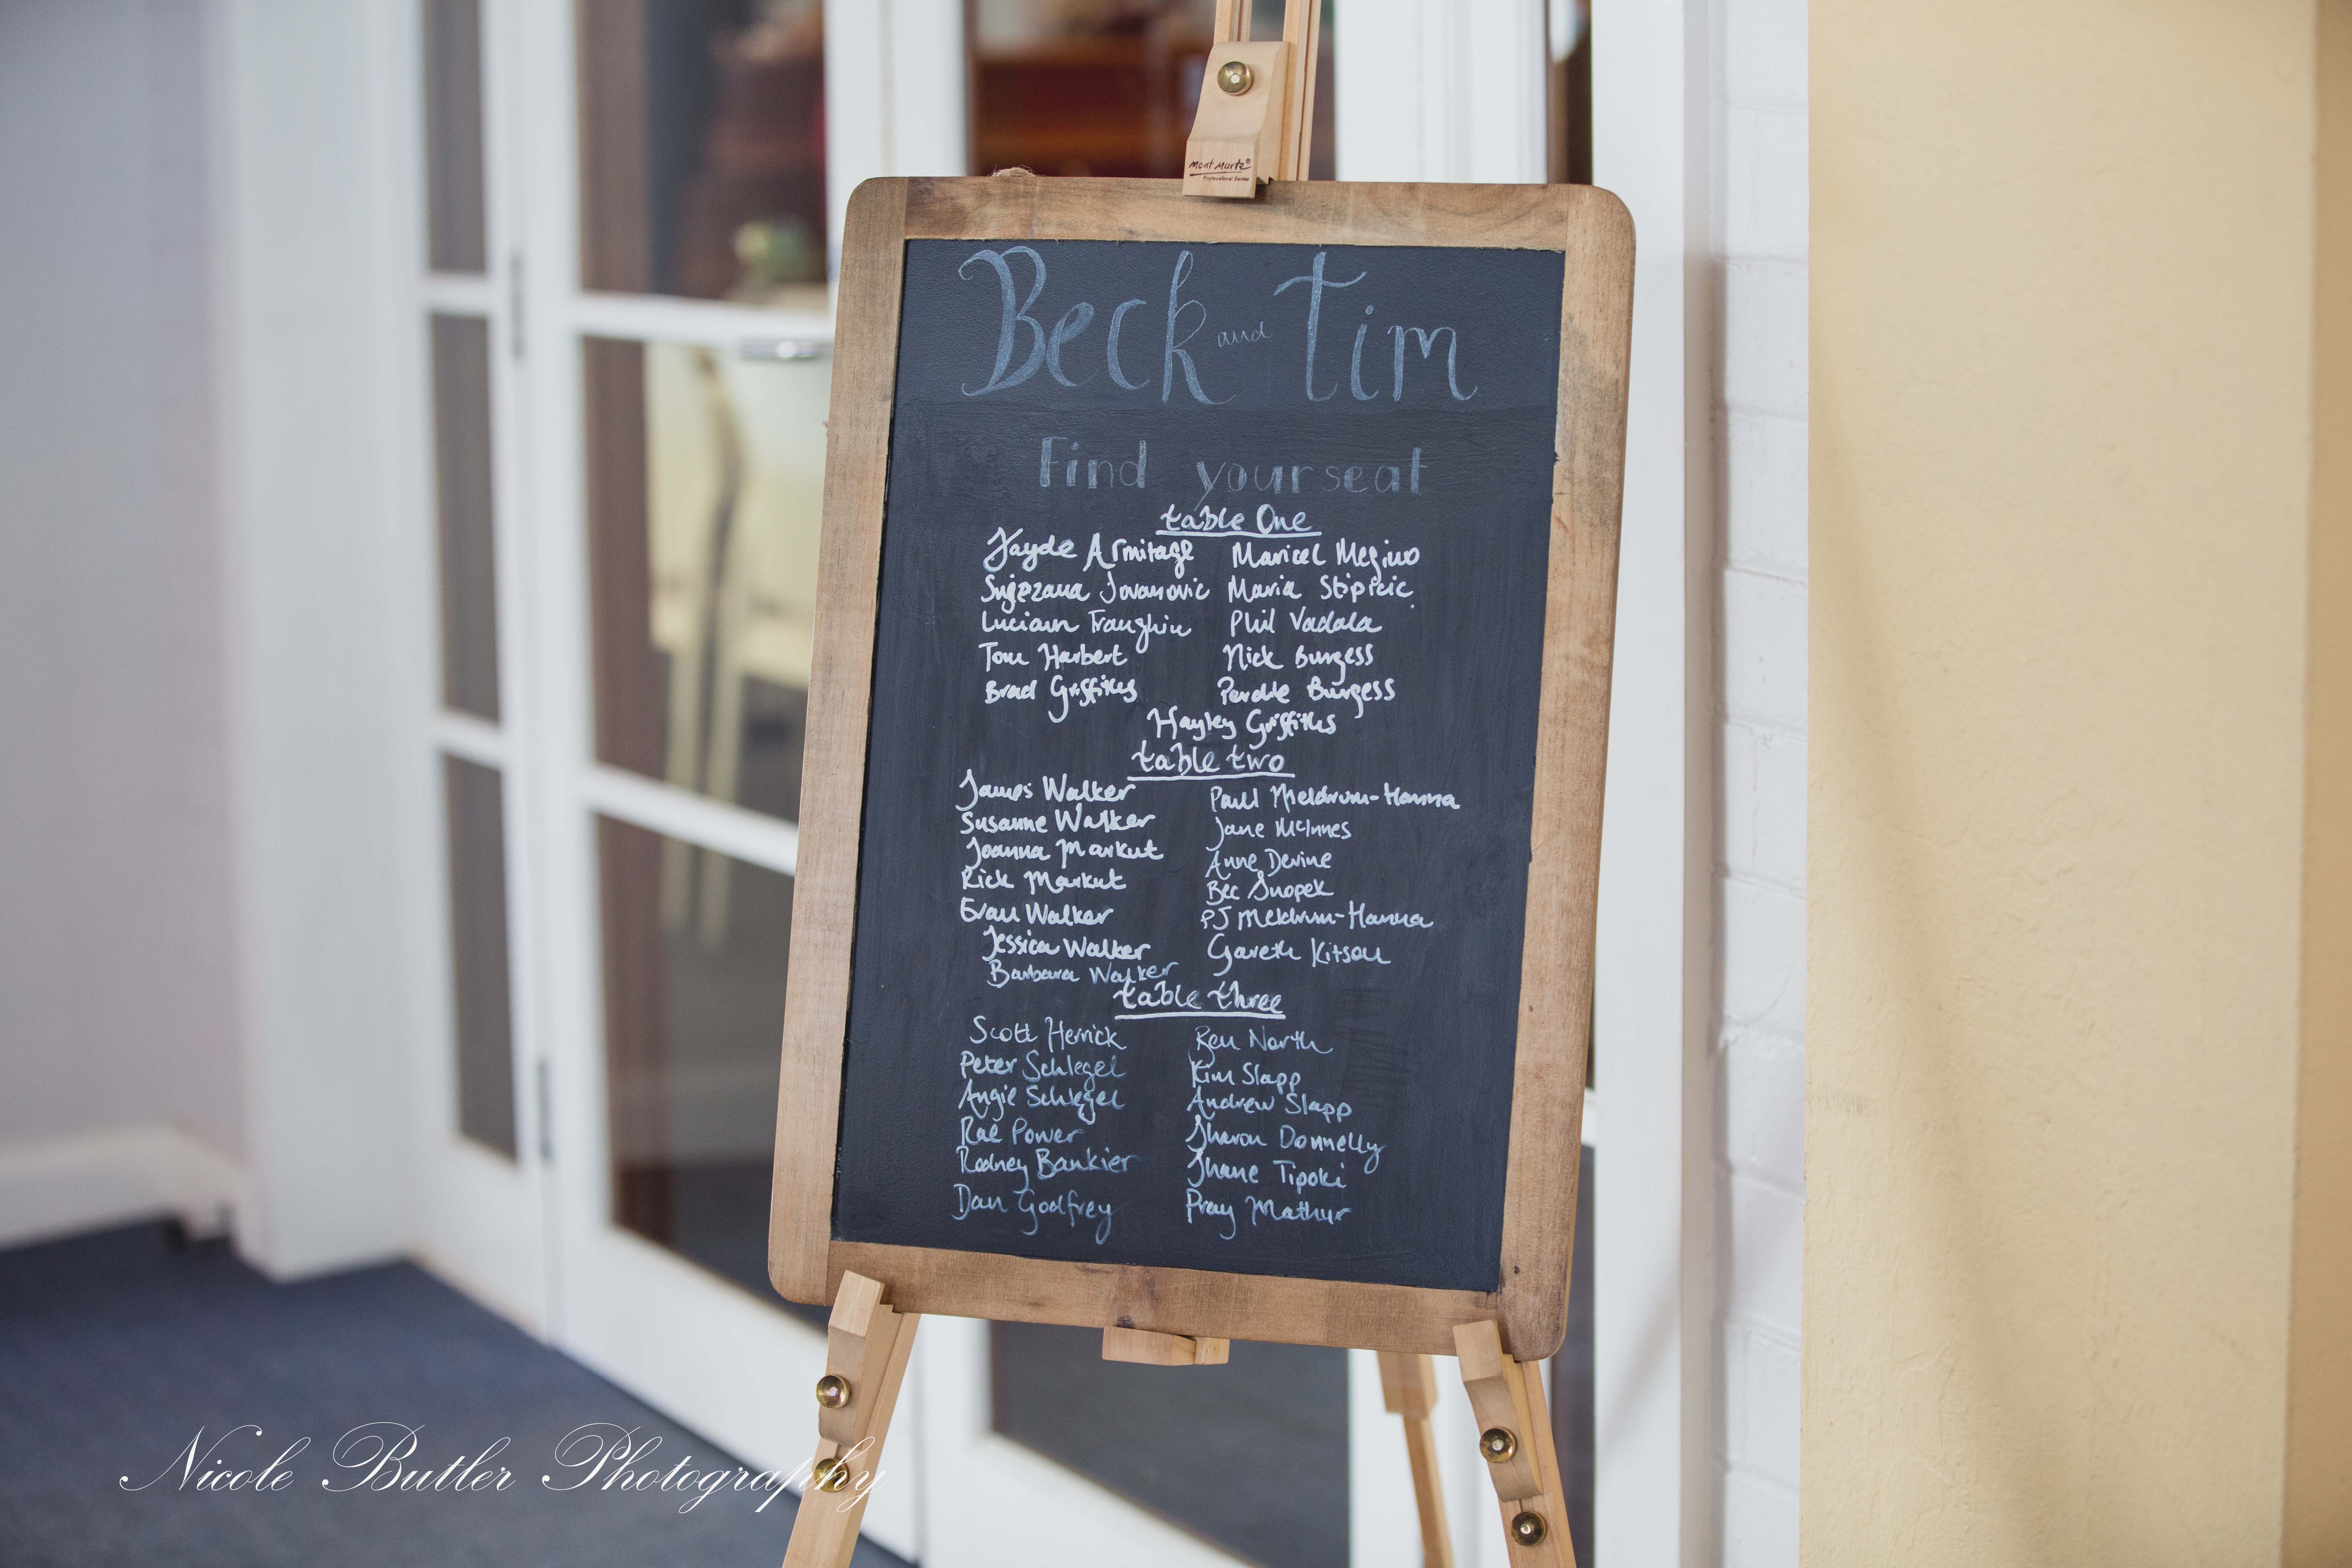 Mont Marte®
Professional Series
Beck and Tim
Find your seat
table One
Jayde Armitage Maricel Megino
Snjezana Jovanovic Maria Stipicic
Lucian Franghiu Phil Vadala
Tom Harbert Nick Burgess
Brad Griffiths Burgess
Hayley Griffiths
table two
James Walker Paull Meldrum-Hanna
Susanne Walker Jane McInnes
Joanna Markut Anne Devine
Rick Markut Bec Snopek
Evan Walker PJ Meldrum-Hanna
Jessica Walker Gareth Kitson
Barbara Walker
table three
Scott Herrick Ren North
Peter Schlegel Kim Slapp
Angie Schlegel Andrew Slapp
Rae Power Sharon Donnelly
Rodney Bankier Shane Tipoki
Dan Godfrey Pray Mathur
Nicole Butler Photography